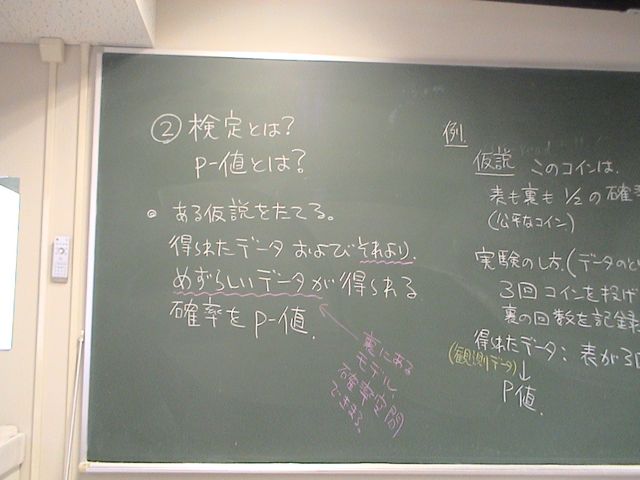 ② 検定とは?
P-値とは?
ある仮説をたてる。
得られたデータおよびそれより
めずらしいデータが得られる
確率をP-値.
裏にある
モデル.
確率空間
できまる.
例.
仮説 このコインは.
表も裏も 1/2 の確率
(公平なコイン)
実験のしかた.(データのと
3回コインを投げ
裏の回数を記録
得られたデータ: 表が3回
(観測データ)
↓
P値.